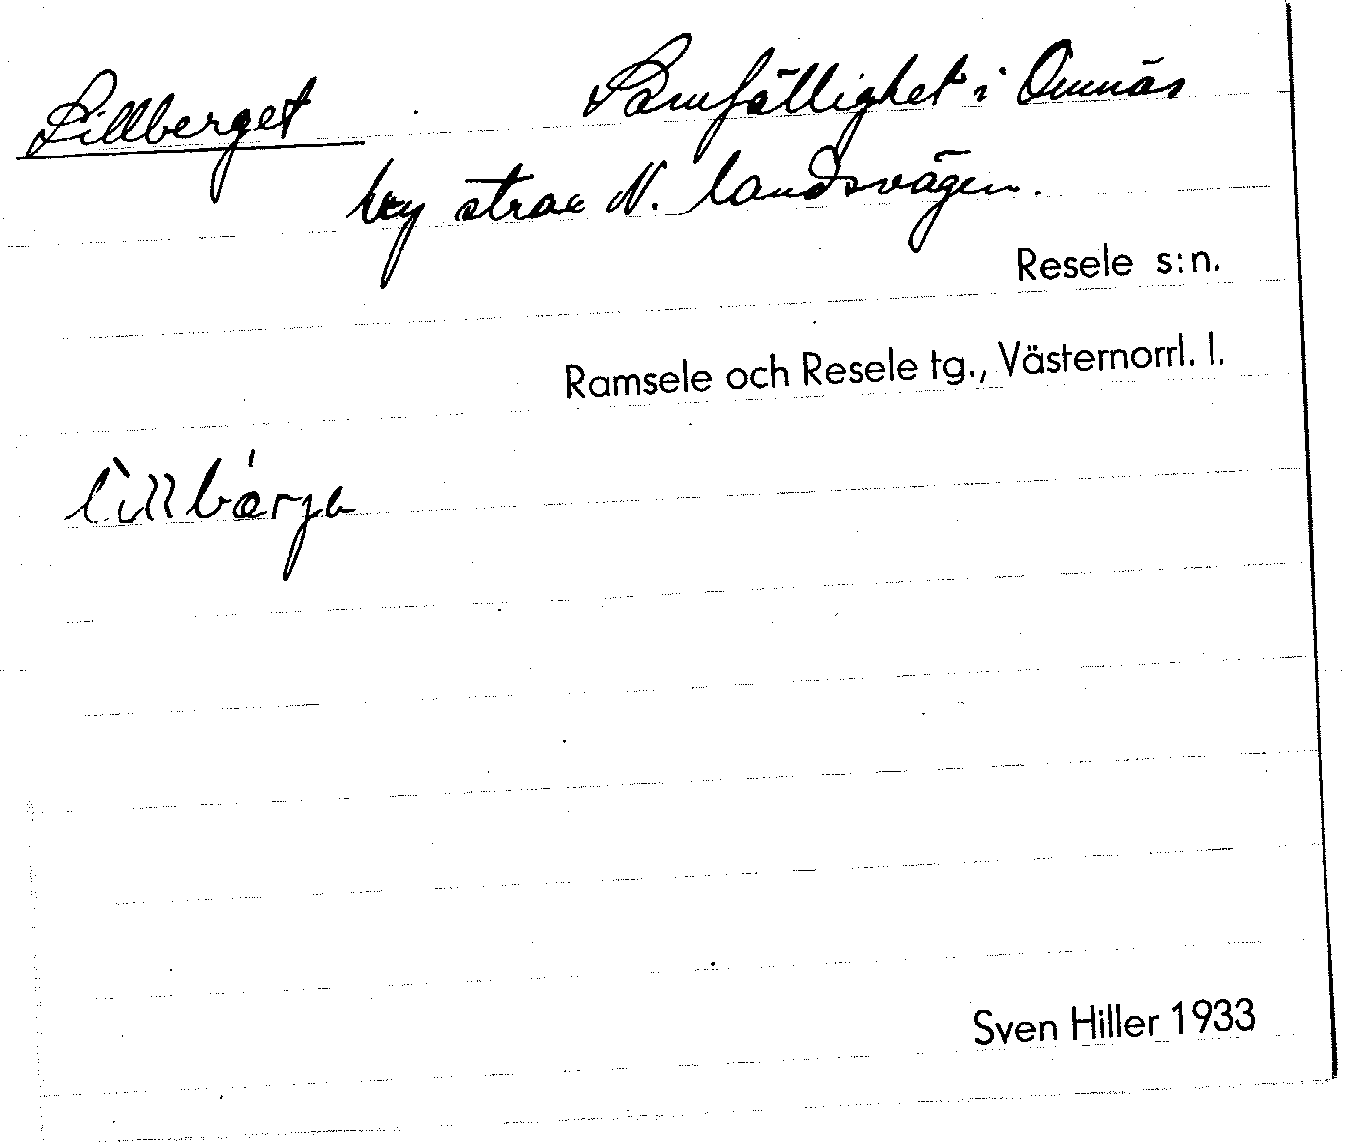 Lillberget Samfällighet i Omnäs
by strax N. landsvägen.
Resele s:n.
Ramsele och Resele tg., Västernorrl. l.
Sven Hiller 1933